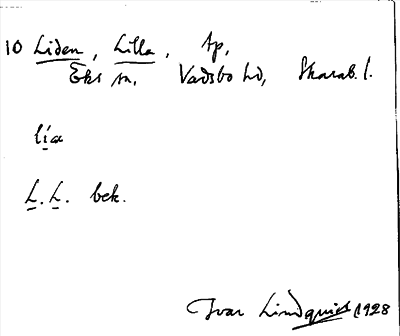 10 Liden, Lilla, tp,
Eks sn, Vadsbo hd, Skarab. l.
lia
L. L. bek.
Ivar Lindquist 1928